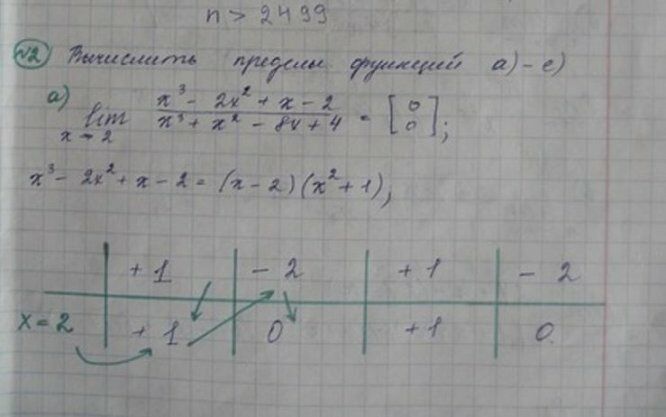 n > 2499
№2 Вычислить пределы функций а) - е)
а) lim x→2 (x³ - 2x² + x - 2)/(x³ + x² - 8x + 4) = [0/0];
x³ - 2x² + x - 2 = (x - 2)(x² + 1);
+ 1 | - 2 | + 1 | - 2
x = 2 | + 1 | 0 | + 1 | 0.